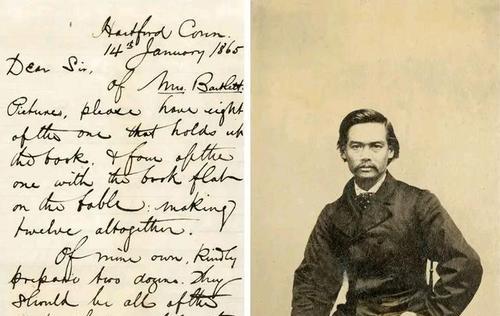 Hartford Conn.
14th January 1865
Dear Sir,
of Mrs. Bartlett
Pictures, please have eight
of the one that holds up
the book, & four of the
one with the book flat
on the table: making
twelve altogether.
Of mine own, kindly
prepare two dozens. They
should be all of the